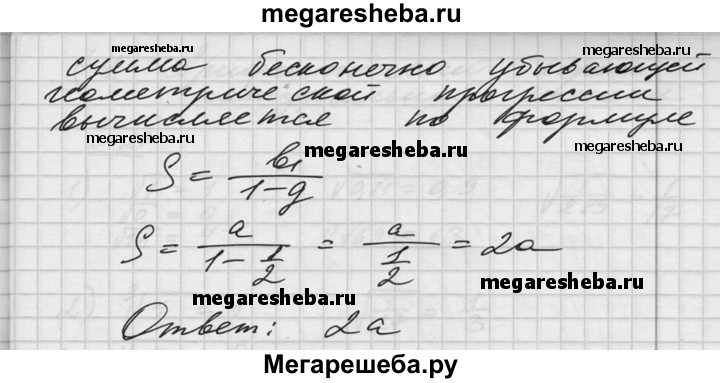 megaresheba.ru
megaresheba.ru
megaresheba.ru
сумма бесконечно убывающей
геометрической прогрессии
вычисляется по формуле
megaresheba.ru
megaresheba.ru
S = b₁/(1-q)
megaresheba.ru
S = a/(1-1/2) = a/(1/2) = 2a
megaresheba.ru
megaresheba.ru
Ответ: 2a
Мегарешеба.ру